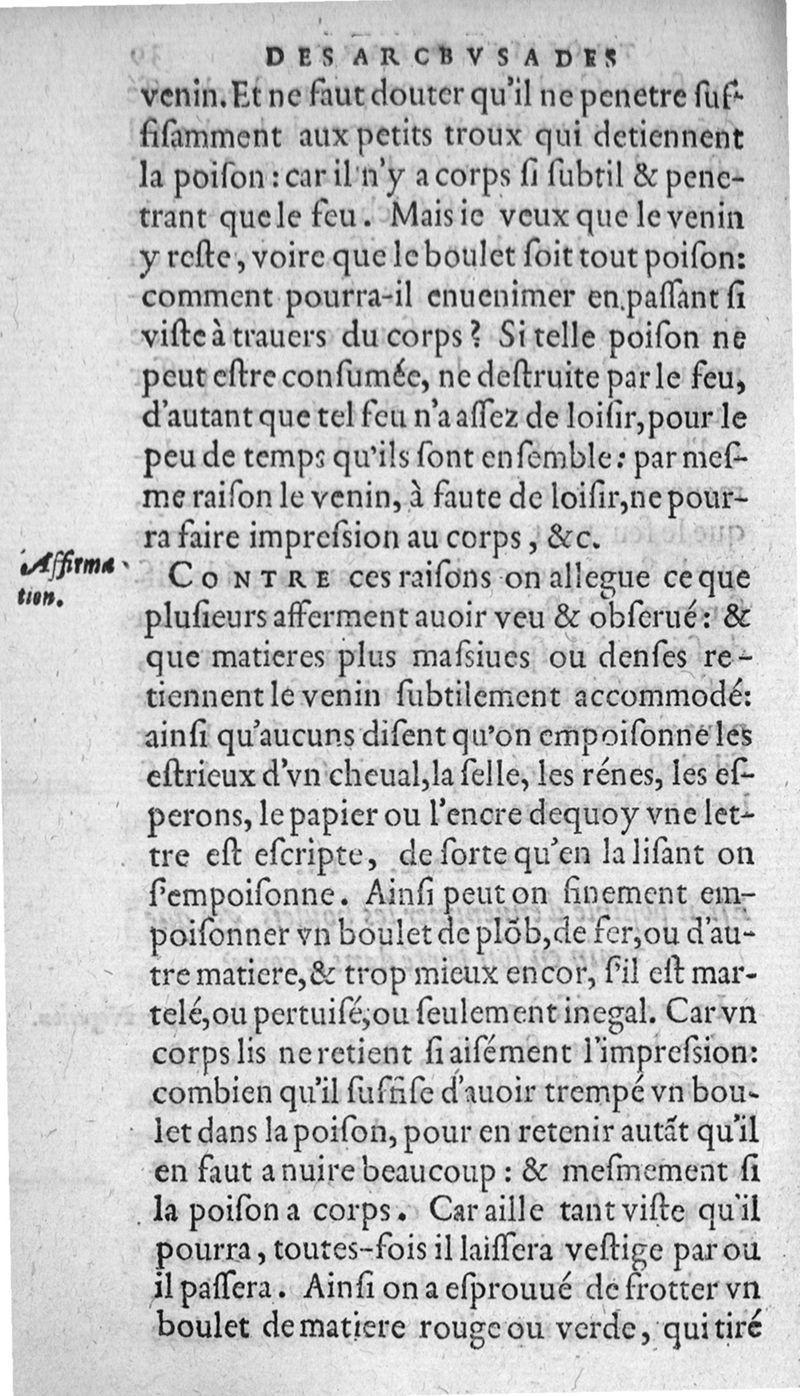 DES ARCBVSADES
venin. Et ne faut douter qu'il ne penetre ſuf-
fiſamment aux petits troux qui detiennent
la poiſon : car il n'y a corps ſi ſubtil & pene-
trant que le feu. Mais ie veux que le venin
y reſte, voire que le boulet ſoit tout poiſon:
comment pourra-il enuenimer en paſſant ſi
viſte à trauers du corps? Si telle poiſon ne
peut eſtre conſumée, ne deſtruite par le feu,
d'autant que tel feu n'a aſſez de loiſir, pour le
peu de temps qu'ils ſont enſemble: par meſ-
me raiſon le venin, à faute de loiſir, ne pour-
ra faire impreſsion au corps, &c.
Affirma
tion.
CONTRE ces raiſons on allegue ce que
pluſieurs afferment auoir veu & obſerué: &
que matieres plus maſsiues ou denſes re-
tiennent le venin ſubtilement accommodé:
ainſi qu'aucuns diſent qu'on empoiſonne les
eſtrieux d'vn cheual, la ſelle, les rénes, les eſ-
perons, le papier ou l'encre dequoy vne let-
tre eſt eſcripte, de ſorte qu'en la liſant on
ſ'empoiſonne. Ainſi peut on finement em-
poiſonner vn boulet de plõb, de fer, ou d'au-
tre matiere, & trop mieux encor, ſ'il eſt mar-
telé, ou pertuiſé, ou ſeulement inegal. Car vn
corps lis ne retient ſi aiſément l'impreſsion:
combien qu'il ſuffiſe d'auoir trempé vn bou-
let dans la poiſon, pour en retenir autãt qu'il
en faut a nuire beaucoup : & meſmement ſi
la poiſon a corps. Car aille tant viſte qu'il
pourra, toutes-fois il laiſſera veſtige par ou
il paſſera. Ainſi on a eſprouué de frotter vn
boulet de matiere rouge ou verde, qui tiré